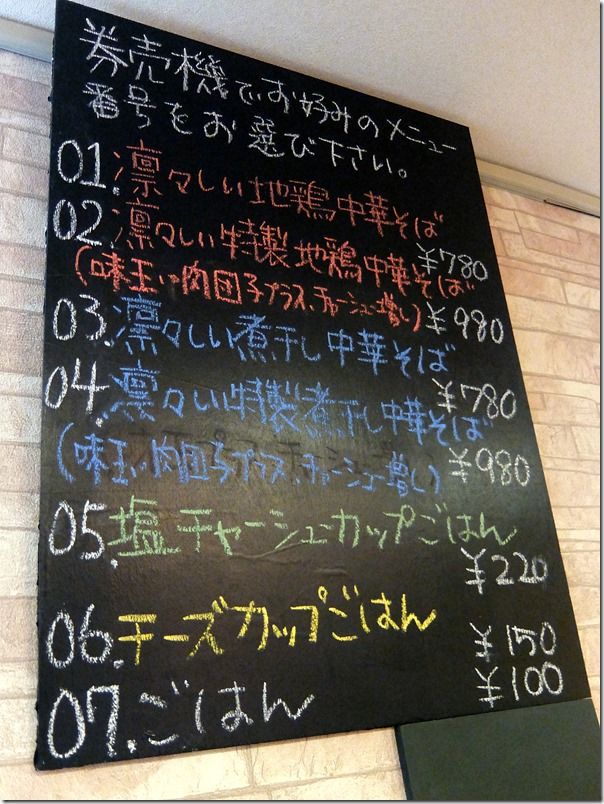 券売機でお好みのメニュー
番号をお選び下さい。
01.凛々しい地鶏中華そば
¥780
02.凛々しい特製地鶏中華そば
(味玉、肉団子プラス、チャーシュー増し) ¥980
03.凛々しい煮干し中華そば
¥780
04.凛々しい特製煮干し中華そば
(味玉、肉団子プラス、チャーシュー増し) ¥980
05.塩チャーシューカップごはん
¥220
06.チーズカップごはん
¥150
07.ごはん ¥100